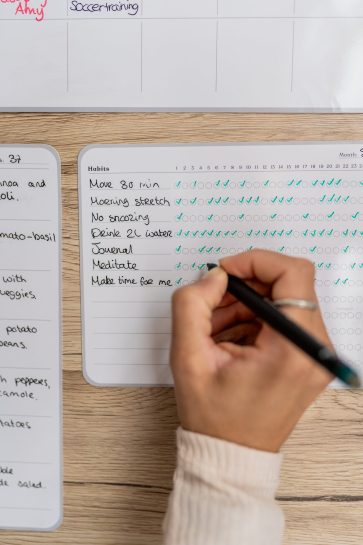 Amy
Soccertraining
. 37
Month:
Habits
1 2 3 4 5 6 7 8 9 10 11 12 13 14 15 16 17 18 19 20 21 22 23
Move 30 min
Morning stretch
No snoozing
Drink 2L water
Journal
Meditate
Make time for me
and
oli.
mato-basil
with
veggies.
potato
beans.
peppers,
camole.
tatoes
ble
salad.